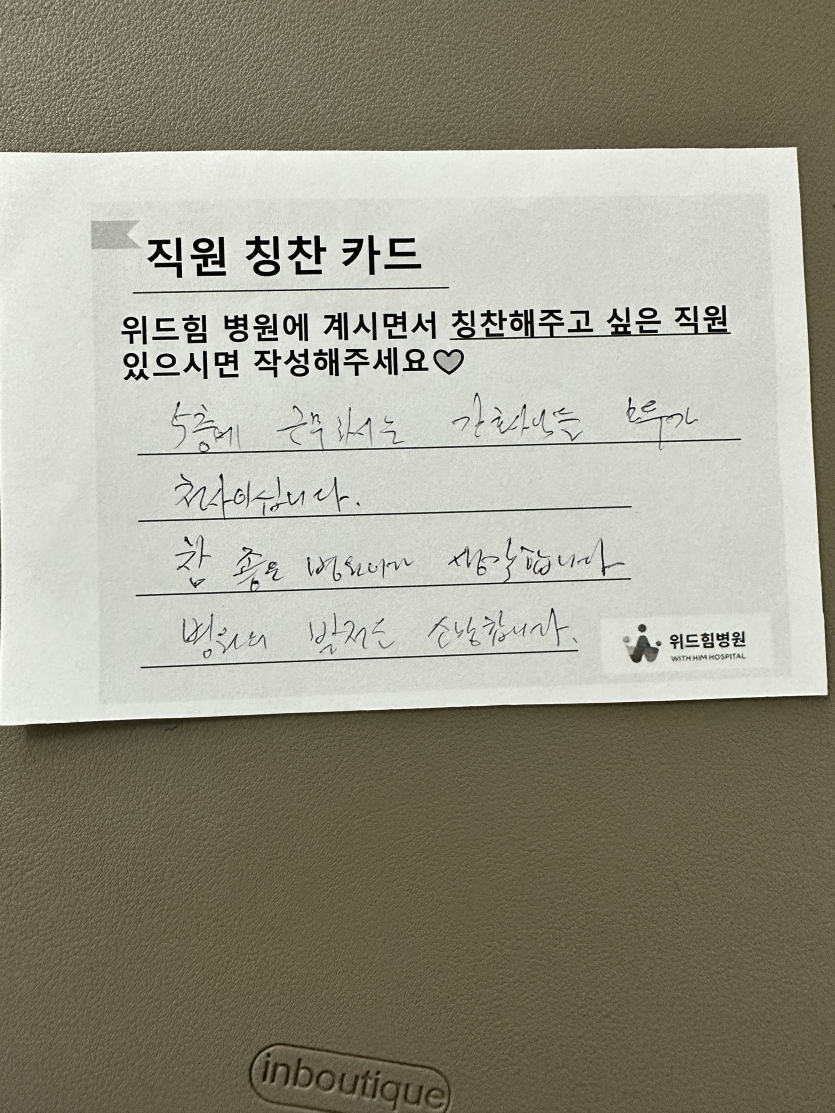 직원 칭찬 카드
위드힘 병원에 계시면서 칭찬해주고 싶은 직원
있으시면 작성해주세요♡
5층에 근무하시는 간호사님들 모두가
천사이십니다.
참 좋은 병원이라 생각합니다
병원의 발전을 소망합니다.
위드힘병원
WITH HIM HOSPITAL
inboutique